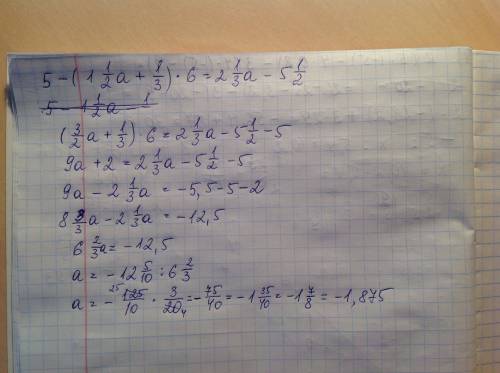 5 - (1 1/2 a + 1/3) · 6 = 2 1/3 a - 5 1/2
5 - 1 1/2 a - 1
(3/2 a + 1/3) · 6 = 2 1/3 a - 5 1/2 - 5
9a + 2 = 2 1/3 a - 5 1/2 - 5
9a - 2 1/3 a = -5,5 - 5 - 2
8 3/3 a - 2 1/3 a = -12,5
6 2/3 a = -12,5
a = -12 5/10 : 6 2/3
a = - 25 125/10 · 3/20 4 = - 75/40 = -1 35/40 = -1 7/8 = -1,875